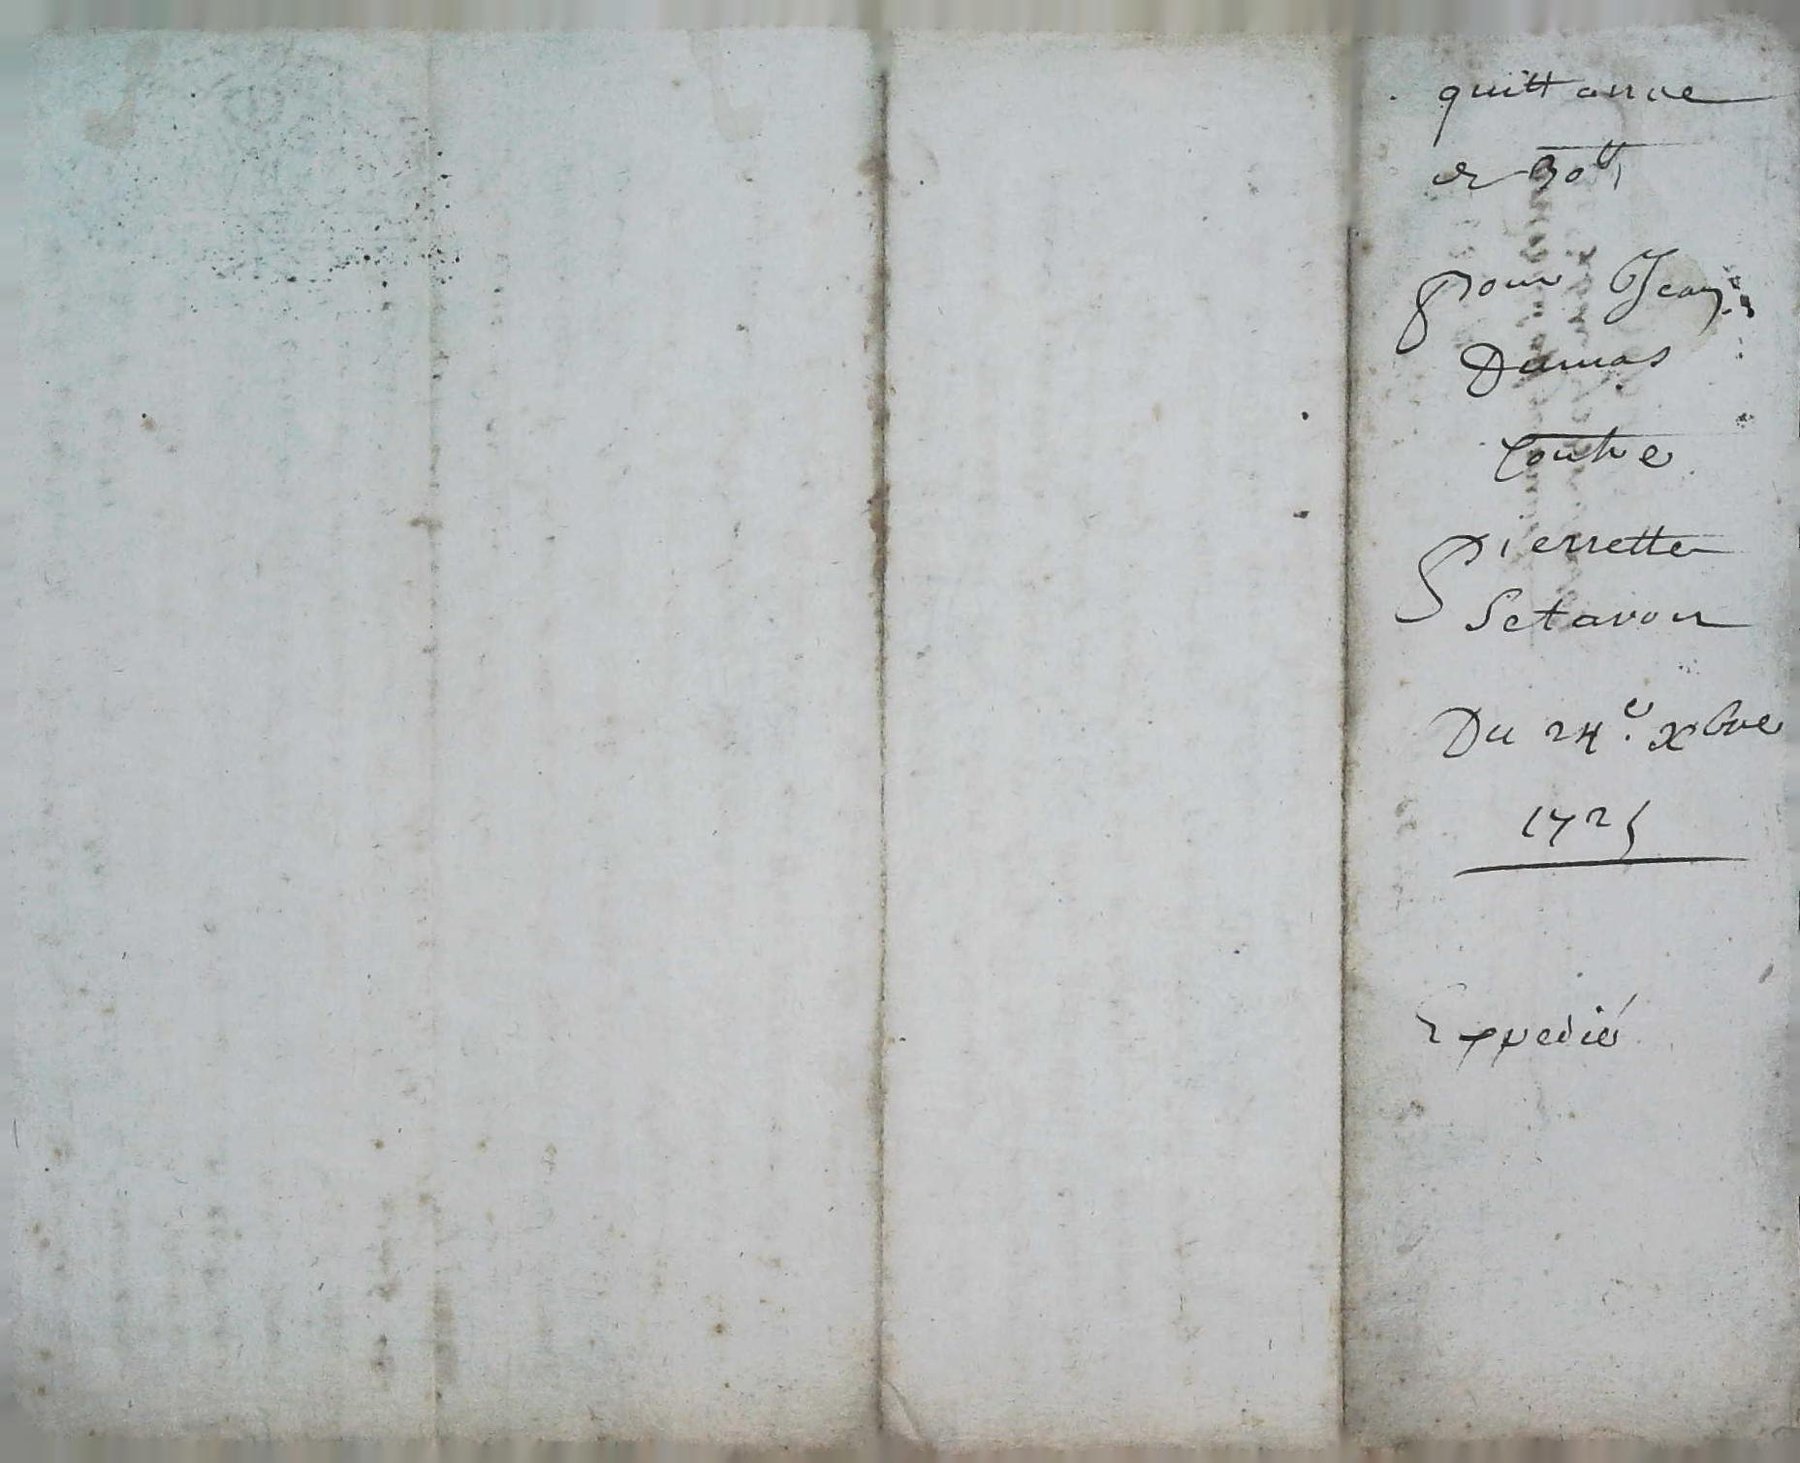 quittance
de 30lt
pour Jean
Dumas
Contre
pierrette
Setavon
Du 24e. xbre
1725
Expedié